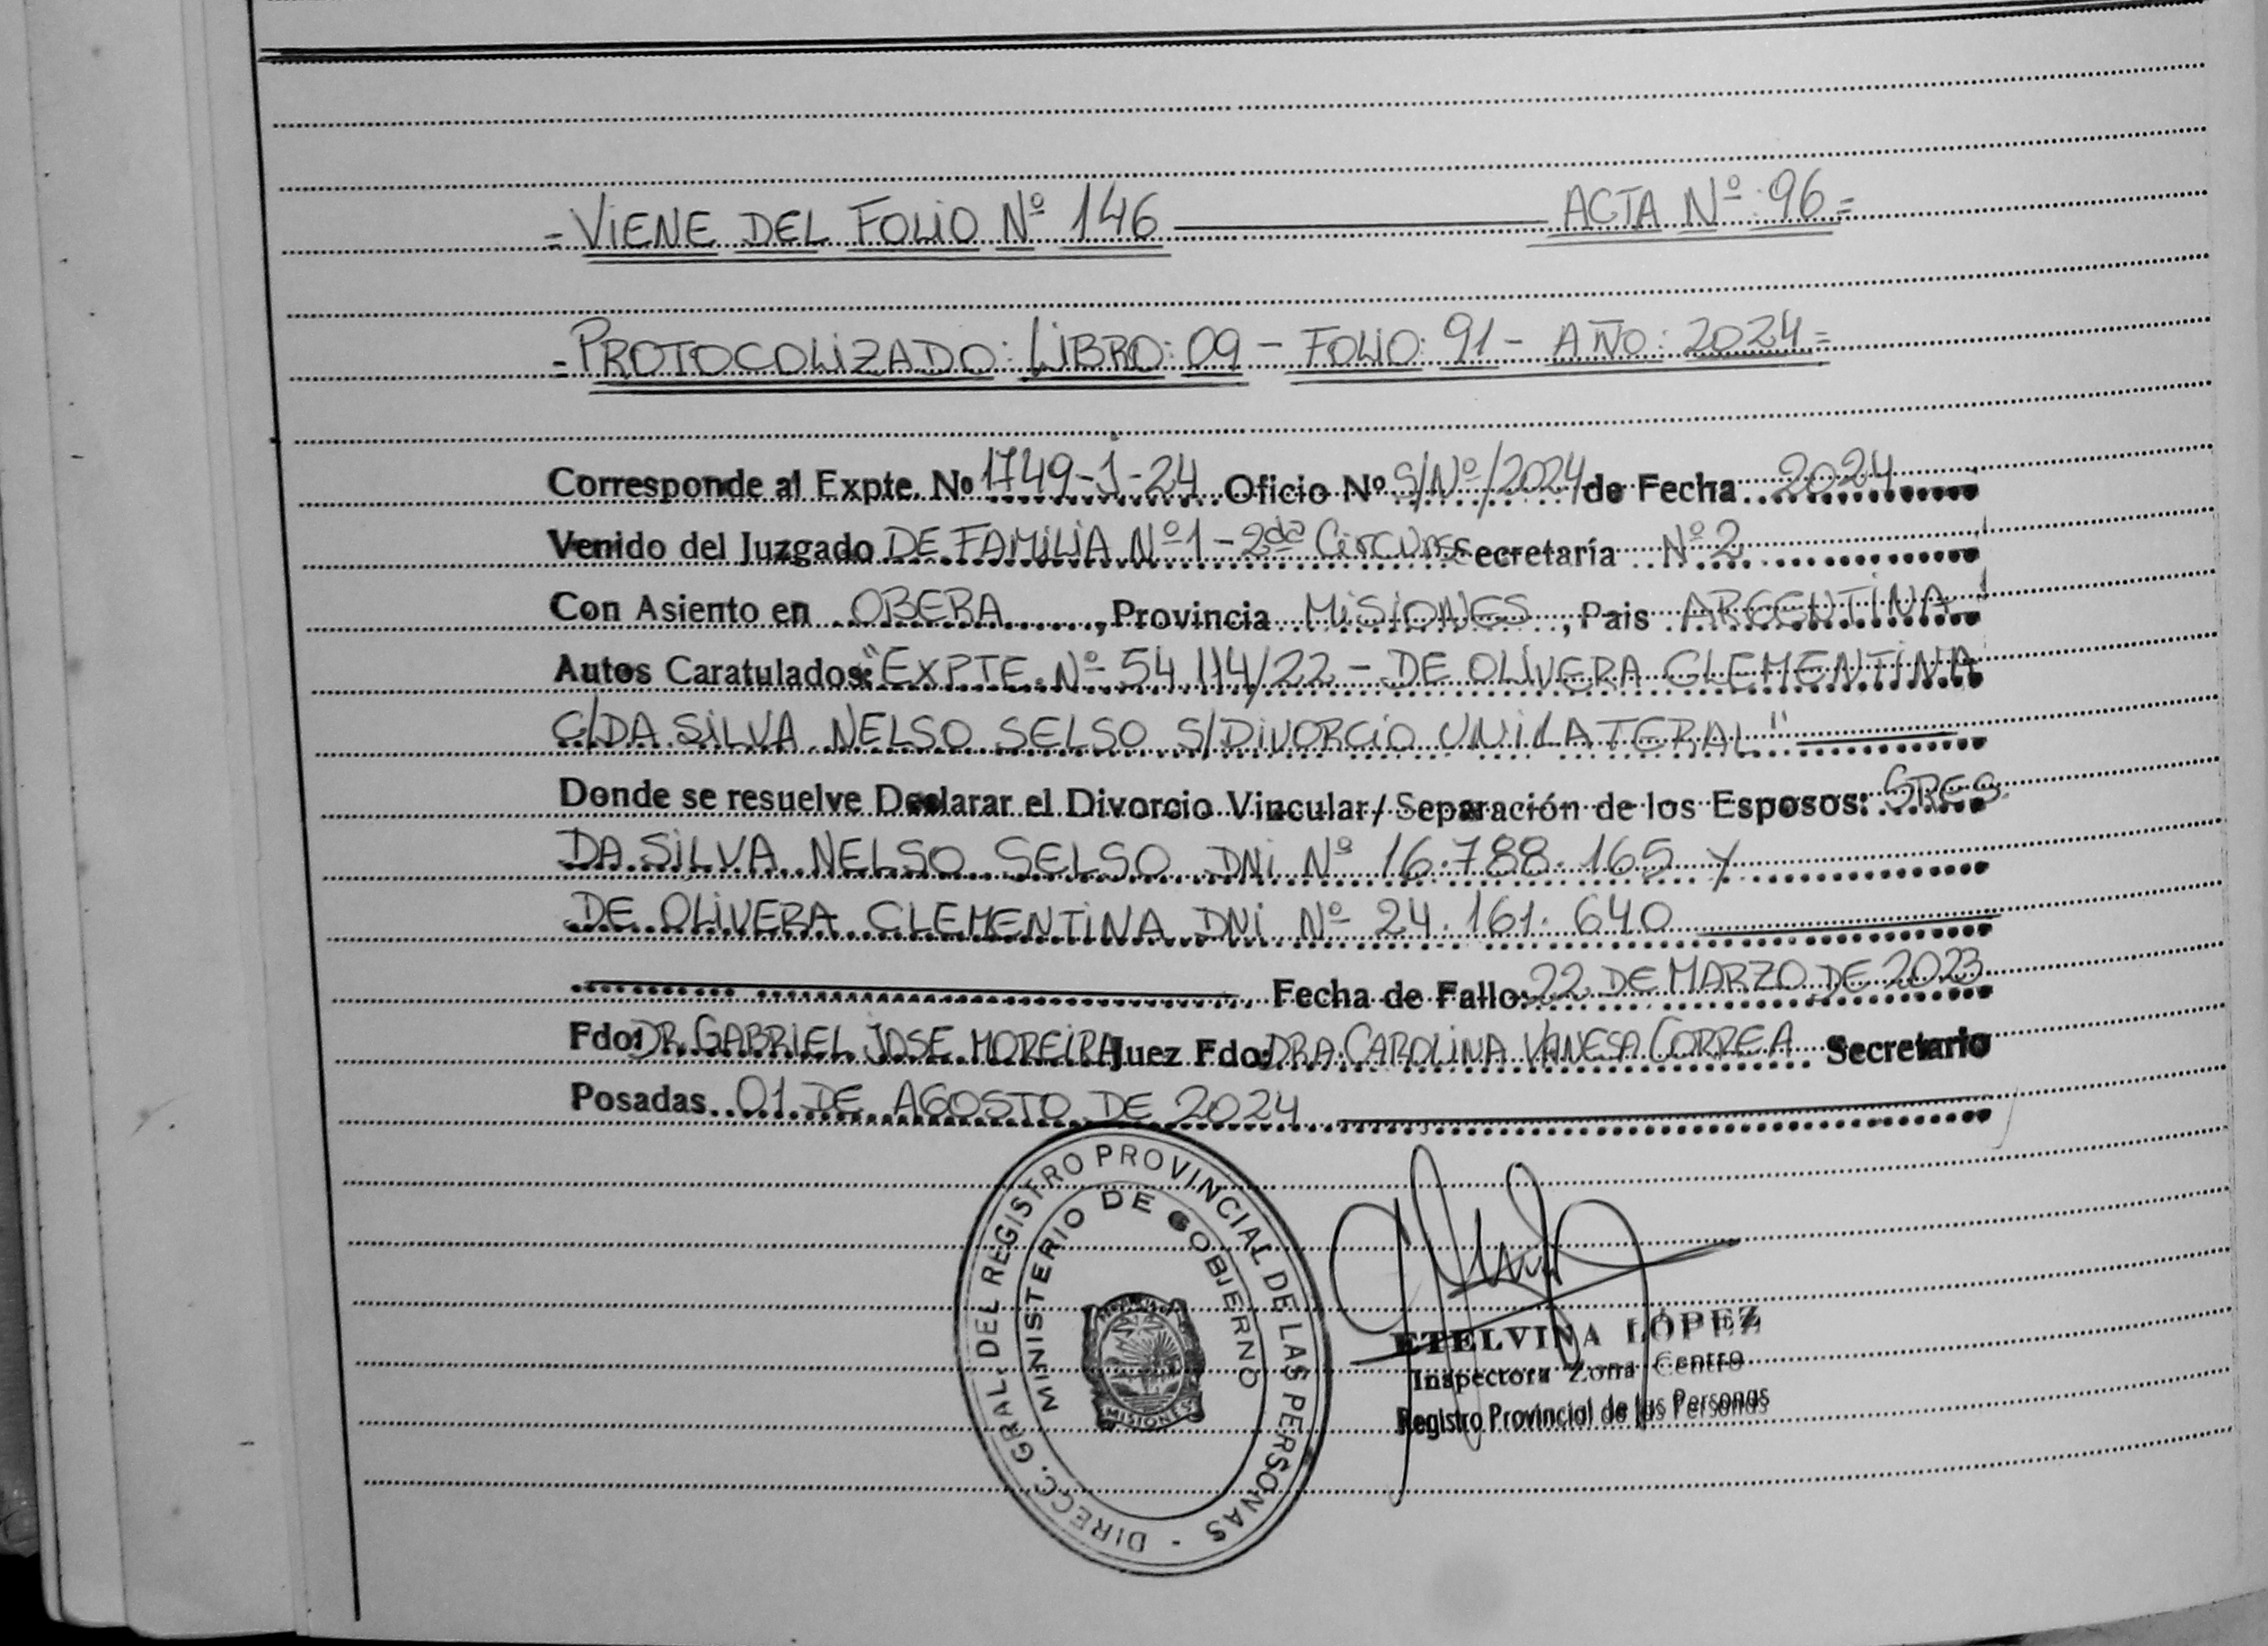 = VIENE DEL FOLIO Nº 146 ACTA Nº 96 =
= PROTOCOLIZADO: LIBRO: 09 - FOLIO: 91 - AÑO: 2024 =
Corresponde al Expte. Nº 1749-J-24 Oficio Nº S/Nº/2024 de Fecha 2024
Venido del Juzgado DE FAMILIA Nº 1 - 2da Circuns Secretaría Nº 2
Con Asiento en OBERA, Provincia MISIONES, Pais ARGENTINA
Autos Caratulados: "EXPTE. Nº 54.114/22 - DE OLIVERA CLEMENTINA
C/DA SILVA NELSO SELSO S/DIVORCIO UNILATERAL"
Donde se resuelve Declarar el Divorcio Vincular / Separación de los Esposos: SRES.
DA SILVA NELSO SELSO DNI Nº 16.788.165 Y
DE OLIVERA CLEMENTINA DNI Nº 24.161.640
Fecha de Fallo: 22 DE MARZO DE 2023
Fdo: DR. GABRIEL JOSE MOREIRA Juez Fdo: DRA. CAROLINA VANESA CORREA Secretario
Posadas 01 DE AGOSTO DE 2024
DIRECC. GRAL. DEL REGISTRO PROVINCIAL DE LAS PERSONAS -
MINISTERIO DE GOBIERNO
MISIONES
ETELVINA LÓPEZ
Inspectora Zona Centro
Registro Provincial de las Personas